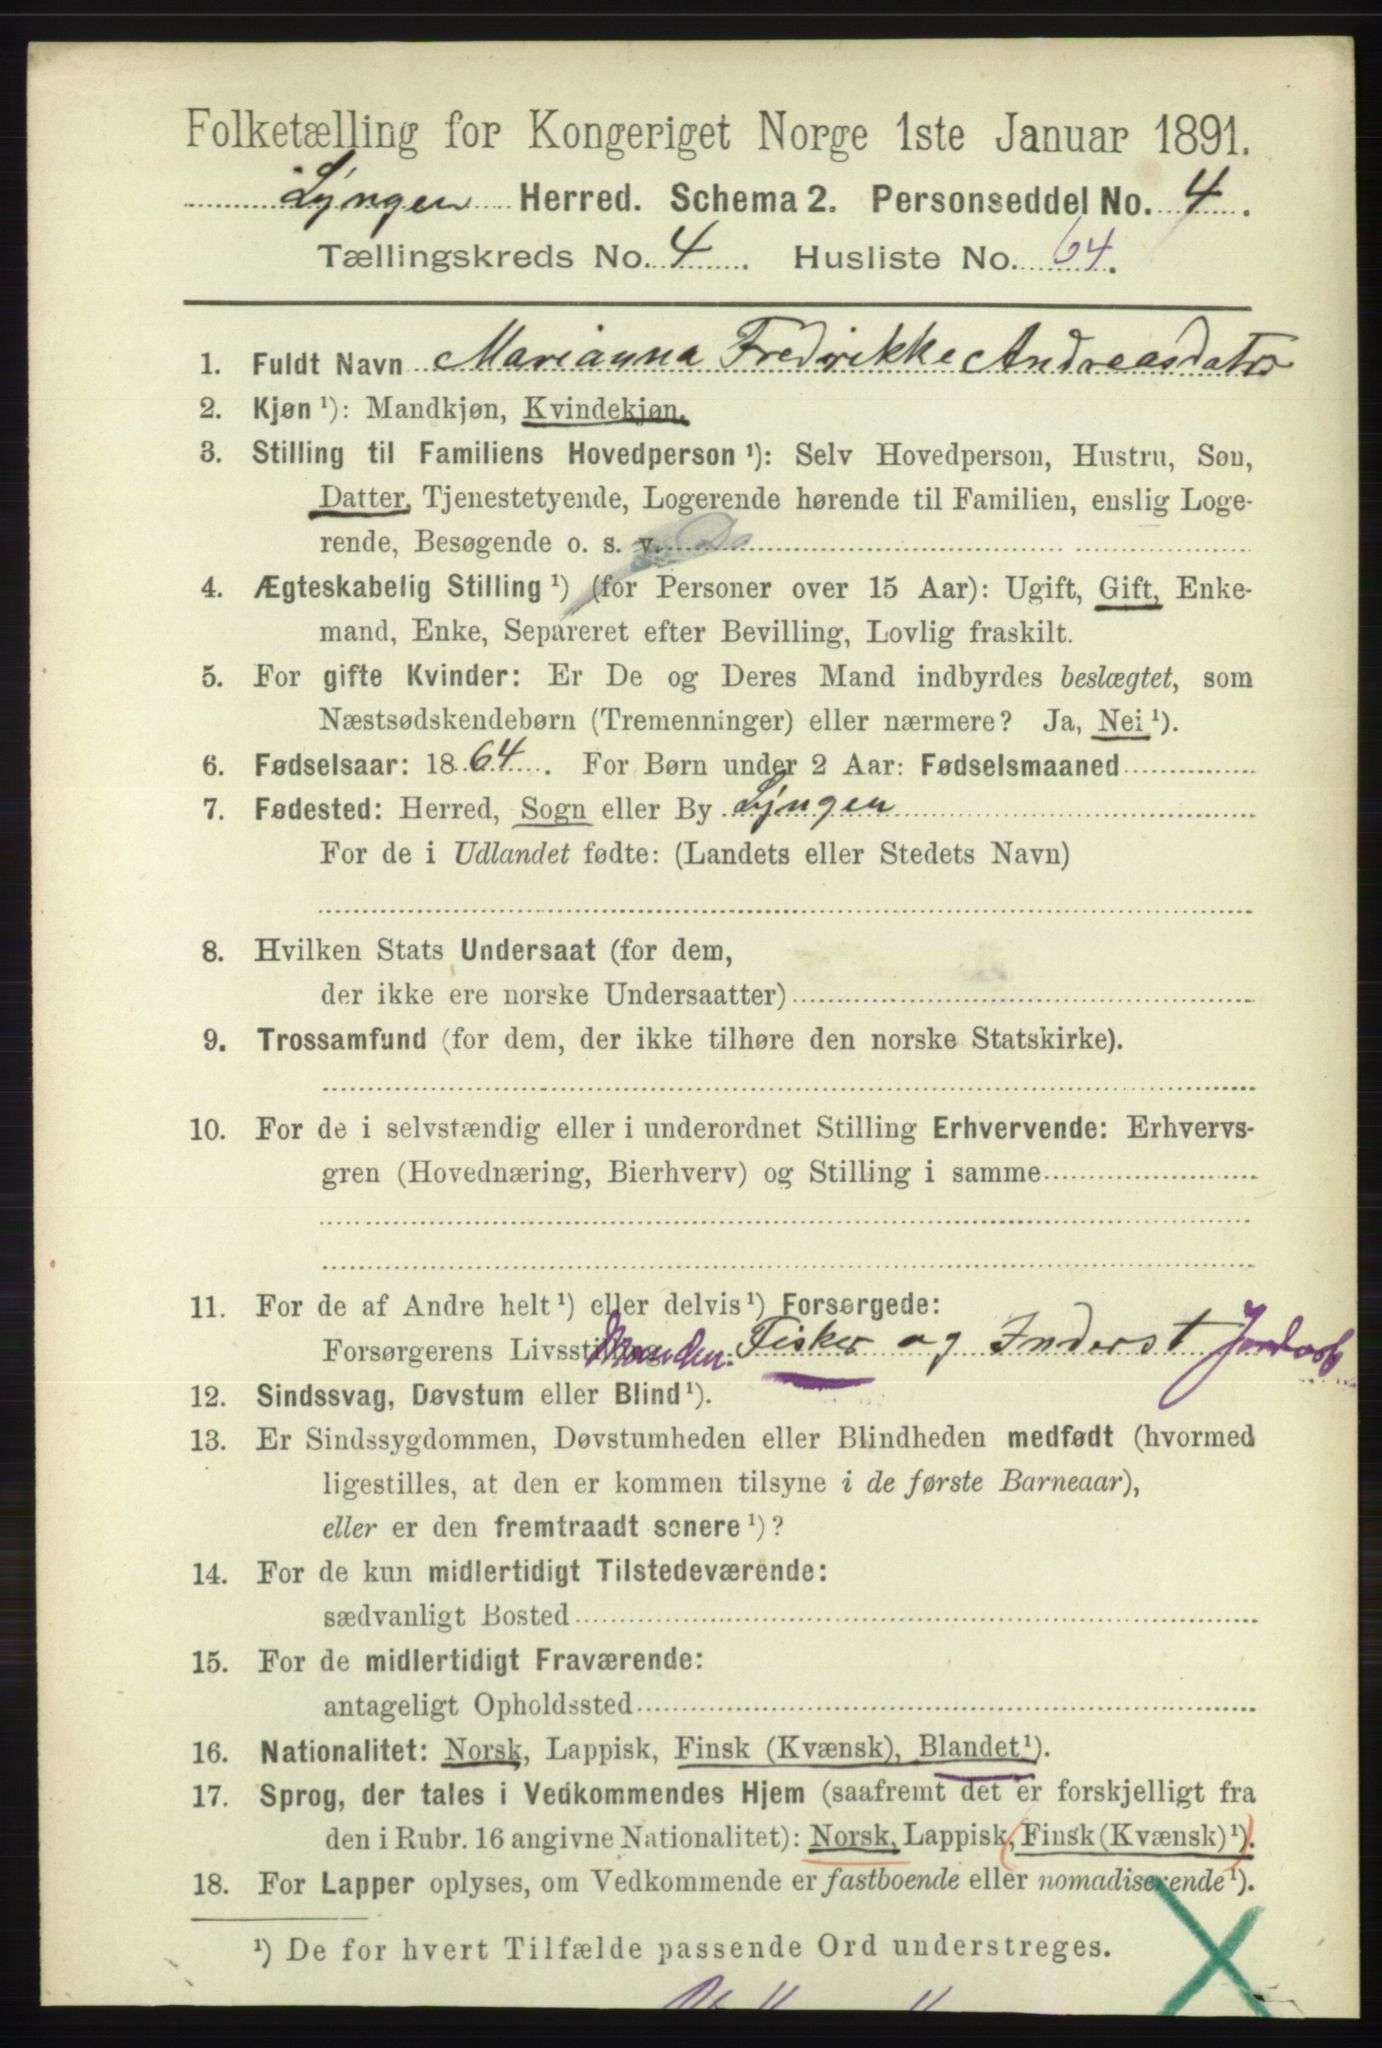 Folketælling for Kongeriget Norge 1ste Januar 1891.
Lyngen Herred. Schema 2. Personseddel No. 4.
Tællingskreds No. 4. Husliste No. 64.
1. Fuldt Navn Marianna Fredrikke Andreasdatr
2. Kjøn ¹): Mandkjøn, Kvindekjøn.
3. Stilling til Familiens Hovedperson ¹): Selv Hovedperson, Hustru, Søn,
Datter, Tjenestetyende, Logerende hørende til Familien, enslig Loge-
rende, Besøgende o. s. v.
4. Ægteskabelig Stilling ¹) (for Personer over 15 Aar): Ugift, Gift, Enke-
mand, Enke, Separeret efter Bevilling, Lovlig fraskilt.
5. For gifte Kvinder: Er De og Deres Mand indbyrdes beslægtet, som
Næstsødskendebørn (Tremenninger) eller nærmere? Ja, Nei ¹).
6. Fødselsaar: 1864. For Børn under 2 Aar: Fødselsmaaned
7. Fødested: Herred, Sogn eller By Lyngen
For de i Udlandet fødte: (Landets eller Stedets Navn)
8. Hvilken Stats Undersaat (for dem,
der ikke ere norske Undersaatter)
9. Trossamfund (for dem, der ikke tilhøre den norske Statskirke).
10. For de i selvstændig eller i underordnet Stilling Erhvervende: Erhvervs-
gren (Hovednæring, Bierhverv) og Stilling i samme
11. For de af Andre helt ¹) eller delvis ¹) Forsørgede:
Forsørgerens Livsstilling Manden: Fisker og Inderst
12. Sindssvag, Døvstum eller Blind ¹).
13. Er Sindssygdommen, Døvstumheden eller Blindheden medfødt (hvormed
ligestilles, at den er kommen tilsyne i de første Barneaar),
eller er den fremtraadt senere ¹)?
14. For de kun midlertidigt Tilstedeværende:
sædvanligt Bosted
15. For de midlertidigt Fraværende:
antageligt Opholdssted
16. Nationalitet: Norsk, Lappisk, Finsk (Kvænsk), Blandet ¹).
17. Sprog, der tales i Vedkommendes Hjem (saafremt det er forskjelligt fra
den i Rubr. 16 angivne Nationalitet): Norsk, Lappisk, Finsk (Kvænsk) ¹).
18. For Lapper oplyses, om Vedkommende er fastboende eller nomadiserende ¹).
¹) De for hvert Tilfælde passende Ord understreges.